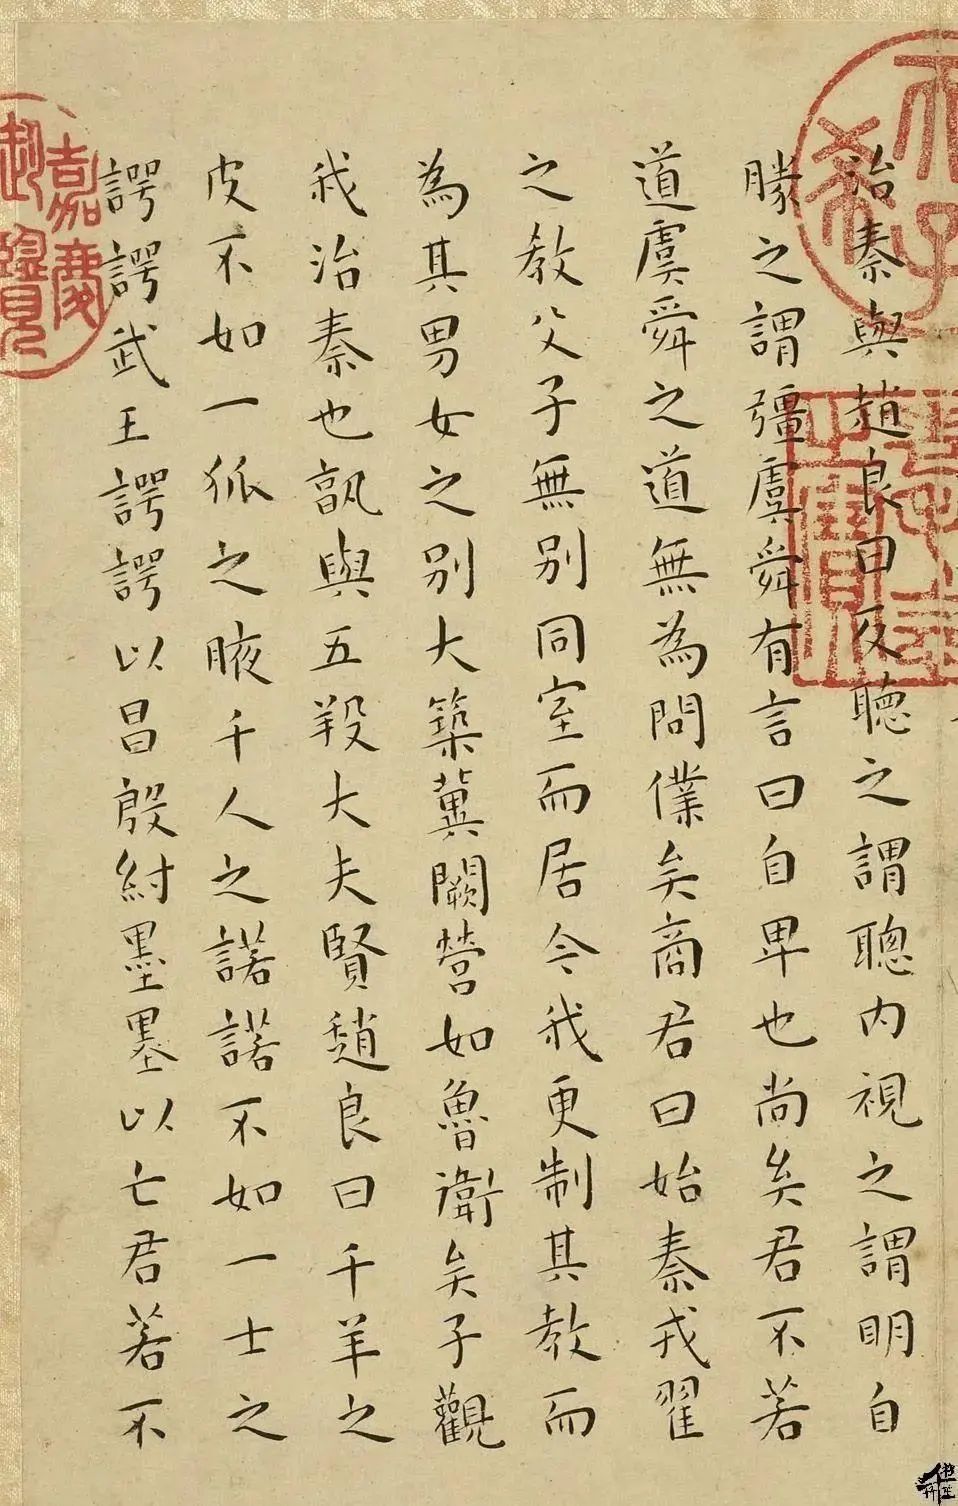 治秦與趙良曰反聽之謂聰內視之謂明自
勝之謂彊虞舜有言曰自卑也尚矣君不若
道虞舜之道無為問僕矣商君曰始秦戎翟
之教父子無別同室而居今我更制其教而
為其男女之別大築冀闕營如魯衛矣子觀
我治秦也孰與五羖大夫賢趙良曰千羊之
皮不如一狐之腋千人之諾諾不如一士之
諤諤武王諤諤以昌殷紂墨墨以亡君若不
嘉慶御覽